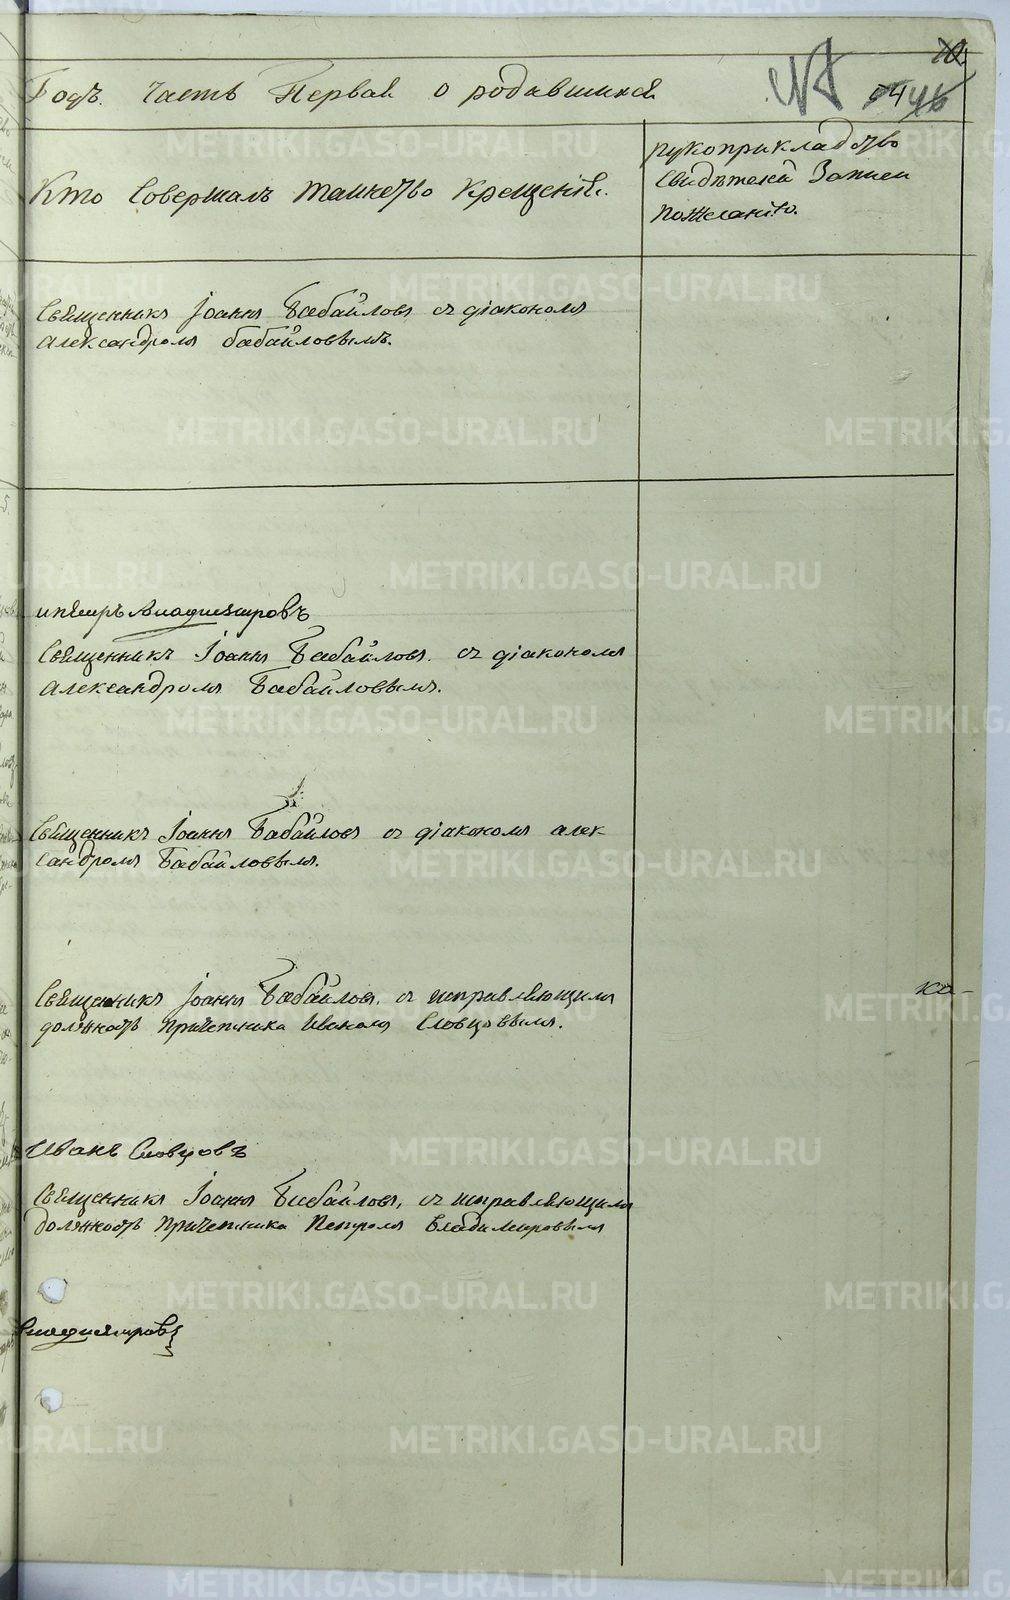 Годъ. Часть Первая о родавшихся
44
Кто Совершалъ таинство Крещенія.
рукоприкладство
Свидѣтелей Записи
по желанію.
Священникъ Іоаннъ Бабайловъ съ діакономъ
Александромъ Бабайловымъ.
Владимировъ
Священникъ Іоаннъ Бабайловъ. съ діакономъ
Александромъ Бабайловымъ.
Священникъ Іоаннъ Бабайловъ съ діакономъ алек
сандромъ Бабайловымъ.
Священникъ Іоаннъ Бабайловъ, съ исправляющимъ
должность причетника Иваномъ Словцовымъ.
Иванъ Словцовъ
Священникъ Іоаннъ Бабайловъ, съ исправляющимъ
должность причетника Петромъ Владимировымъ
Владимировъ
METRIKI.GASO-URAL.RU